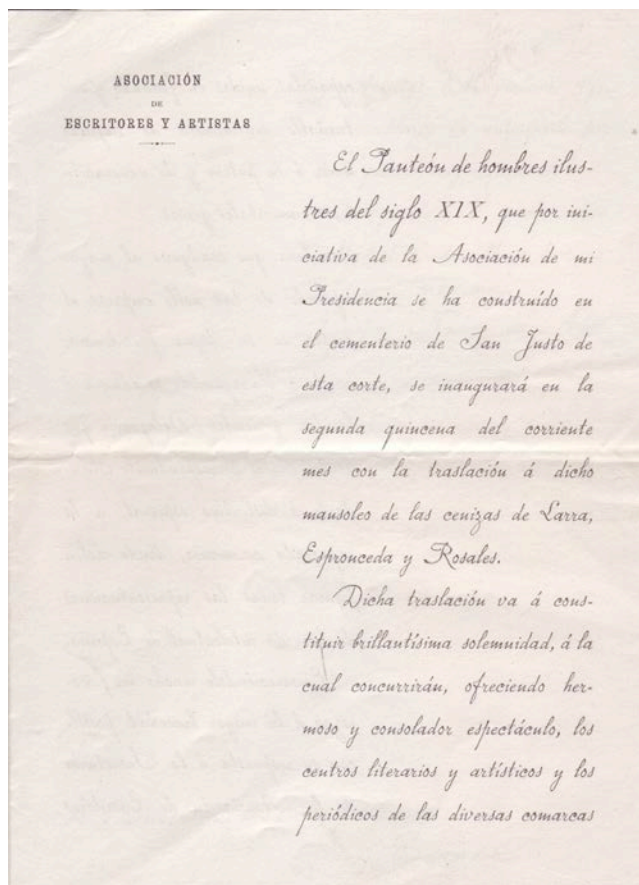 ASOCIACIÓN
DE
ESCRITORES Y ARTISTAS
El Panteón de hombres ilus-
tres del siglo XIX, que por ini-
ciativa de la Asociación de mi
Presidencia se ha construído en
el cementerio de San Justo de
esta corte, se inaugurará en la
segunda quincena del corriente
mes con la traslación á dicho
mausoleo de las cenizas de Larra,
Espronceda y Rosales.
Dicha traslación va á cons-
tituir brillantísima solemnidad, á la
cual concurrirán, ofreciendo her-
moso y consolador espectáculo, los
centros literarios y artísticos y los
periódicos de las diversas comarcas